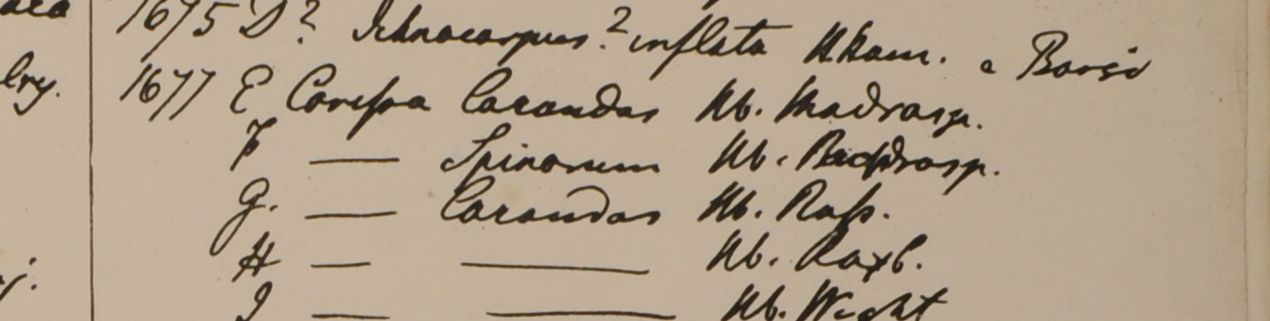 1675 D? Ichnocarpus? inflata HHam. e
1677 E Carissa Carandas Hb. Madrasp.
F — Spinarum Hb.
G. — Carandas Hb. Russ.
H — — Hb. Roxb.
I — — Hb. Wight